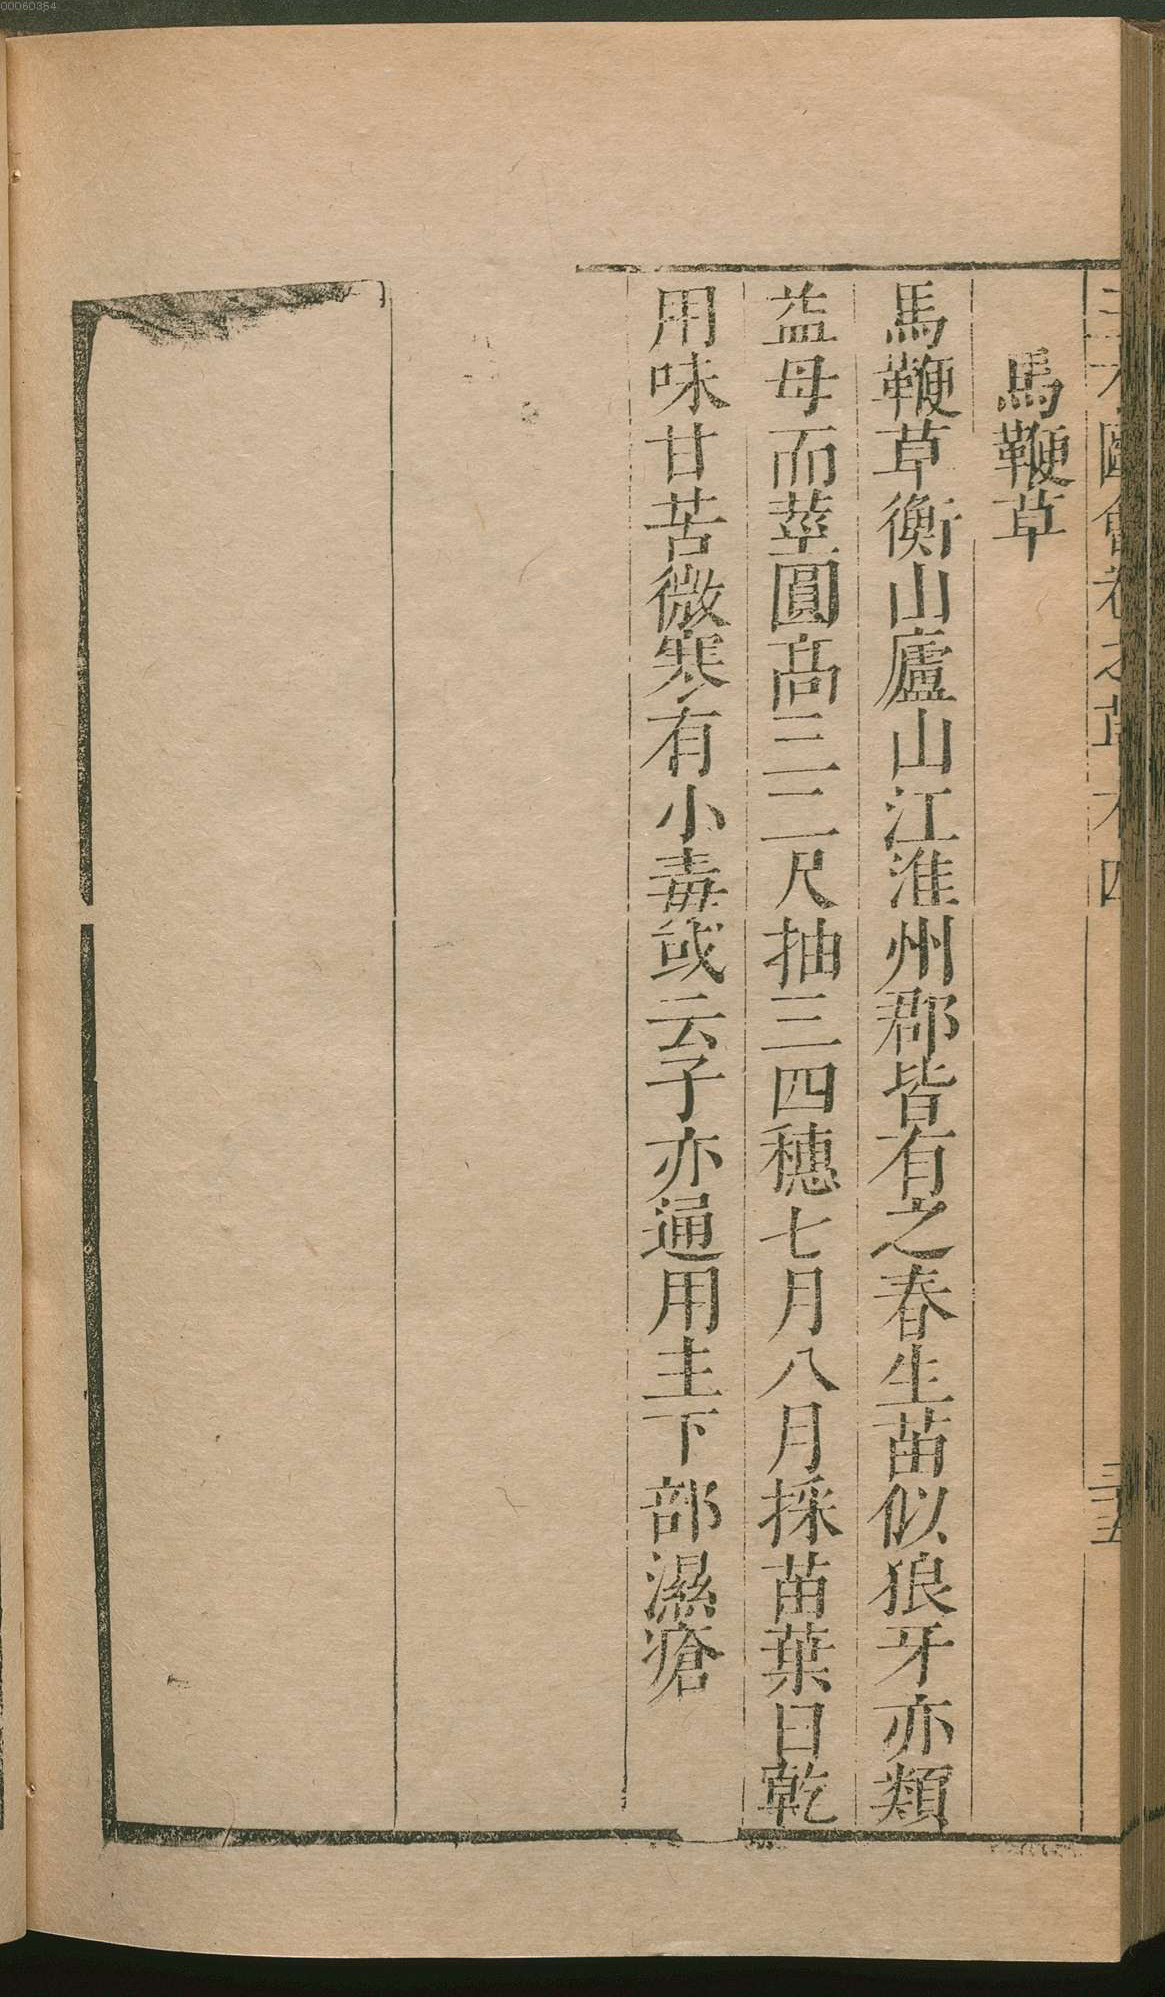 00060354
圖會卷之草木四
三五
馬鞭草
馬鞭草衡山廬山江淮州郡皆有之春生苗似狼牙亦類
益母而莖圓高三二尺抽三四穗七月八月採苗葉日乾
用味甘苦微寒有小毒或云子亦通用主下部濕瘡